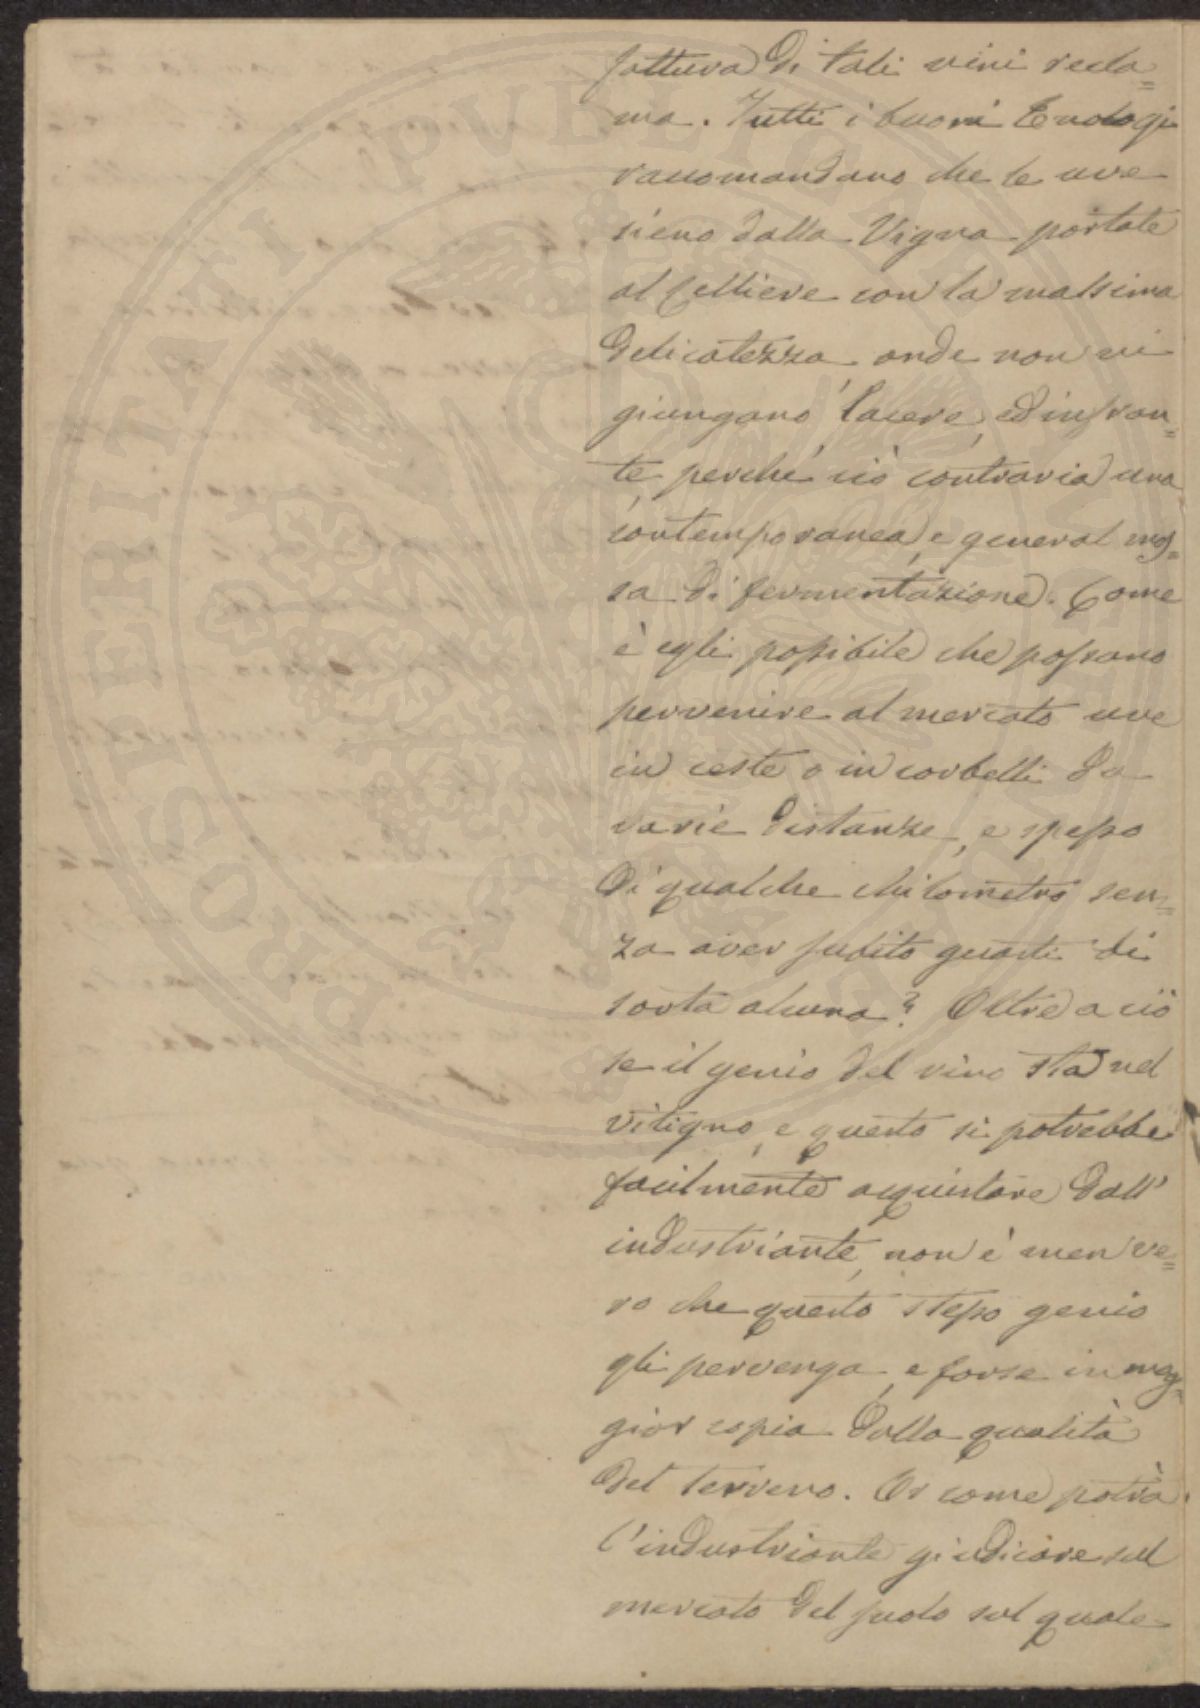 fattura di tali vini recla=
ma. Tutti i buoni Enologi
raccomandano che le uve
sieno dalla Vigna portate
al Celliere con la massima
delicatezza, onde non vi
giungano lacere, ed infran=
te, perché ciò contraria una
contemporanea, e general mos=
sa di fermentazione. Come
è egli possibile che possano
pervenire al mercato uve
in ceste o in corbelli da
varie distanze, e spesso
di qualche chilometro sen=
za aver subito guasti di
sorta alcuna? Oltre a ciò
se il genio del vino sta nel
vitigno, e questo si potrebbe
facilmente acquistare dall'
industriante, non è men ve=
ro che questo stesso genio
gli pervenga, e forse in mag=
gior copia dalla qualità
del terreno. Or come potrà
l'industriante giudicare sul
mercato del suolo sul quale
PROSPERITATI PVBLICAE